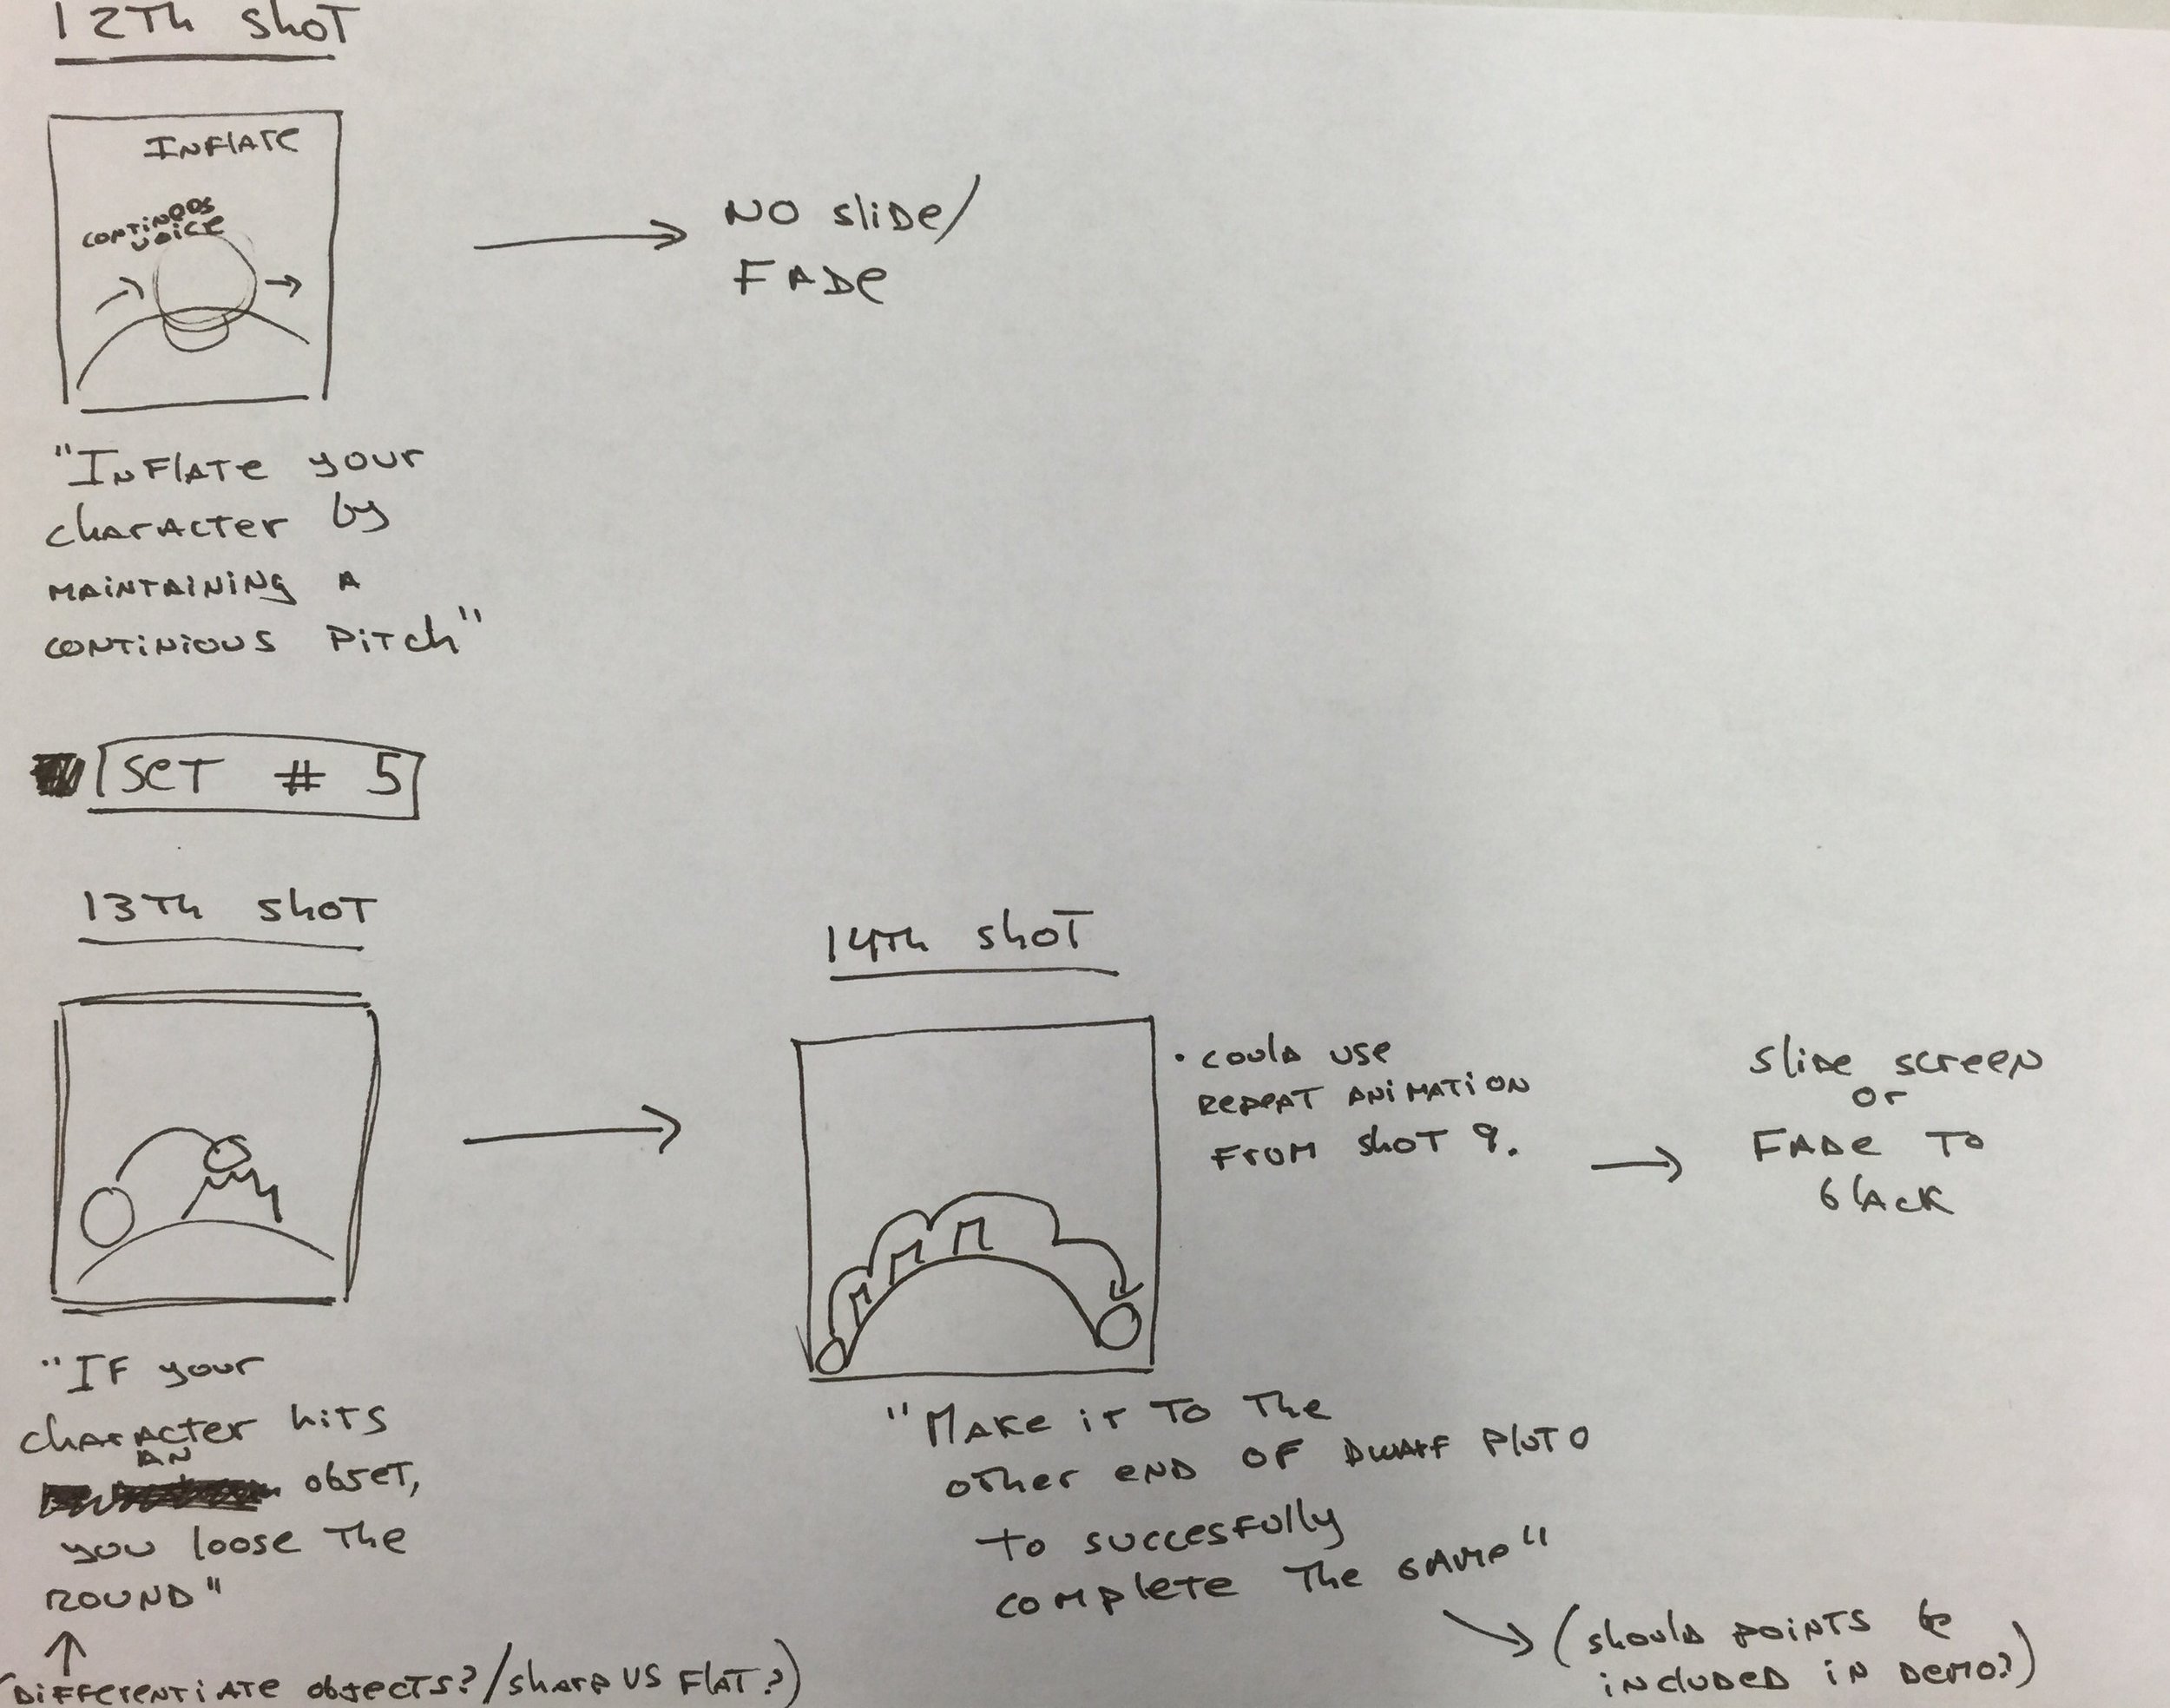 12Th shoT
INFlATe
CONTiNOOS
VOiCe
NO sliDe/
FADe
"INFlATe your
chArActer by
MAiNTAiNiNg A
CONTiNiOUS PiTch"
SeT # 5
13Th shoT
14Th shoT
• Could use
REPEAT ANiMATiON
FroM shoT 9.
Slide screen
or
FADe To
blAcK
"IF your
chArActer hiTs
AN
objet,
you loose The
ROUND"
(DiFFerentiATe objects?/sharp VS FlAT?)
"MAKe iT To The
oTher END OF DwArF PlUTO
to succesfully
coMpleTe The GAMe"
(should poiNTS be
iNcluDeD iN DeMo?)